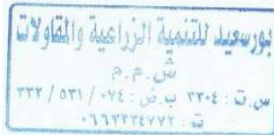 بورسعيد للتنمية الزراعية والمقاولات
ش.م.م
س.ت: ٢٣٠٤ ب.ض: ٠٧٤ / ٥٣١ / ٣٣٢
ت: ٠٦٦٣٢٣٤٧٧٢